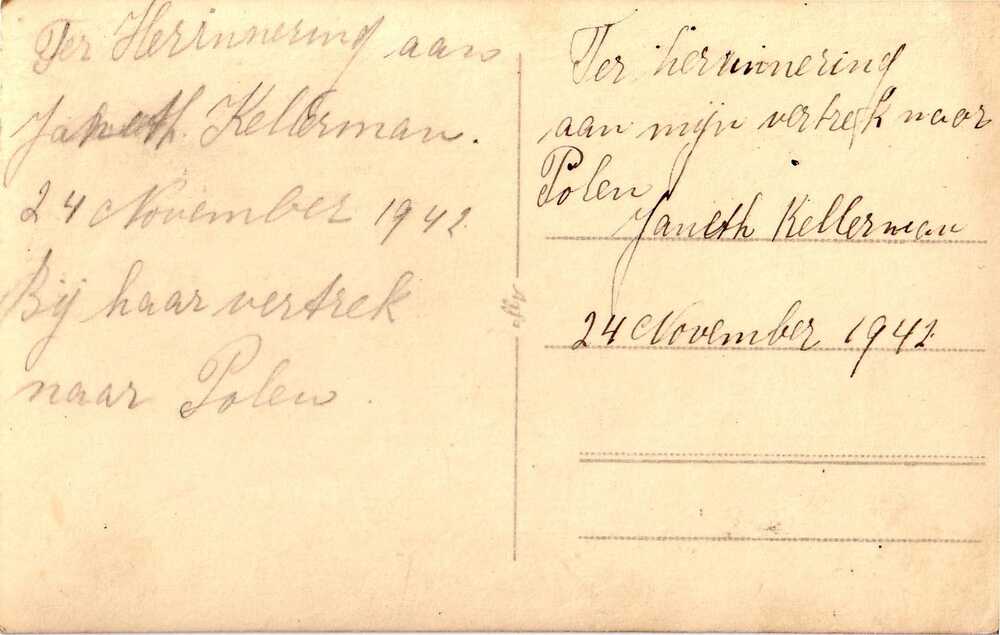 Ter Herinnering aan
Janeth Kellerman.
24 November 1942
Bij haar vertrek
naar Polen.
Ter herinnering
aan mijn vertrek naar
Polen
Janeth Kellerman
24 November 1942